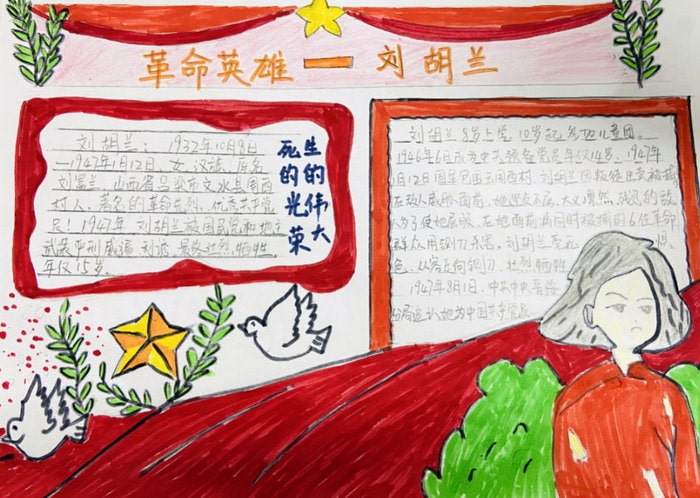 革命英雄一刘胡兰
刘胡兰：1932年10月8日
—1947年1月12日，女，汉族，原名
刘富兰，山西省吕梁市文水县云周西
村人，著名的革命先烈，优秀共产党
员！1947年 刘胡兰被国民党和地主
武装
年仅15岁。
生的伟大
死的光荣
刘胡兰8岁上党，10岁起参加儿童团。
1946年6月成为中共预备党员年仅14岁，1947年
1月12日国军包围云周西村，刘胡兰因叛徒出卖被捕
在敌人威胁面前，她坚贞不屈，大义凛然，残忍的敌
人为了使她屈服，在她面前将同时被捕的6位革命
群众用铡刀杀害，刘胡兰
色，从容走向铡刀，壮烈牺牲
1947年8月1日，中共中央晋绥
分局追认她为中国共产党员